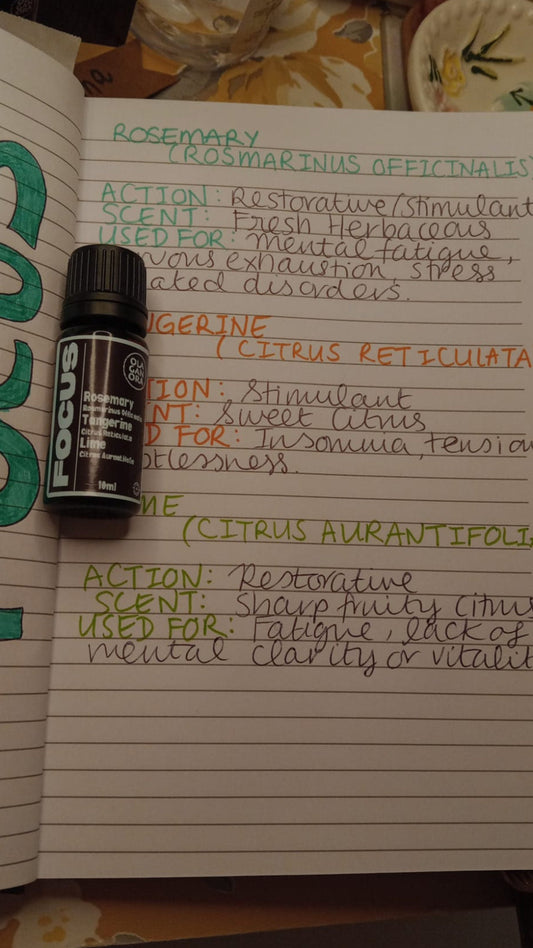 ROSEMARY
(ROSMARINUS OFFICINALIS)
ACTION: Restorative/Stimulant
SCENT: Fresh Herbaceous
USED FOR: Mental fatigue,
vous exhaustion, stress
ated disorders.
NGERINE
(CITRUS RETICULATA
TION: Stimulant
ENT: Sweet Citrus
D FOR: Insomnia, tension
stlessness.
ME
(CITRUS AURANTIFOLIA
ACTION: Restorative
SCENT: Sharp fruity Citrus
USED FOR: Fatigue, lack of
mental clarity or vitalit
FOCUS
OLA
GAN
ORA
Rosemary
Rosmarinus Officinalis
Tangerine
Citrus Reticulata
Lime
Citrus Aurantifolia
10ml